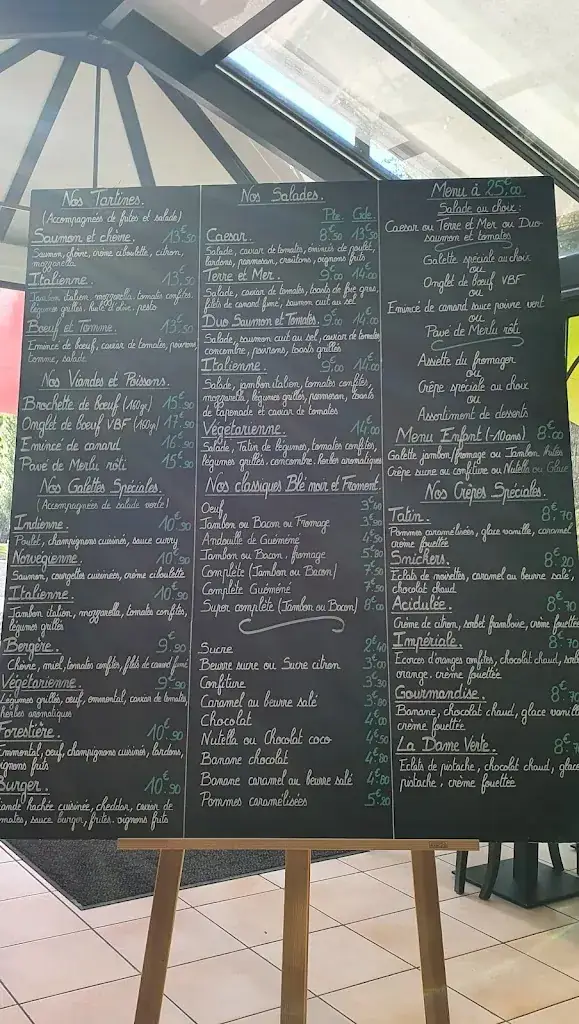 Nos Tartines.
(Accompagnées de frites et salade)
Saumon et chèvre. 13€50
Saumon, chèvre, crème ciboulette, citron,
mozzarella
Italienne. 13€50
Jambon italien, mozzarella, tomates confites,
légumes grillés, huile d'olive, pesto
Boeuf et Tomme. 13€50
Emincé de boeuf, caviar de tomates, poivrons,
tomme, salade
Nos Viandes et Poissons.
Brochette de boeuf (160gr) 15€90
Onglet de boeuf VBF (160gr) 17€90
Emincé de canard 16€90
Pavé de Merlu rôti 15€90
Nos Galettes Spéciales.
(Accompagnées de salade verte)
Indienne. 10€90
Poulet, champignons cuisinés, sauce curry
Norvégienne. 10€90
Saumon, courgettes cuisinées, crème ciboulette
Italienne. 10€90
Jambon italien, mozzarella, tomates confites,
légumes grillés
Bergère. 9€90
Chèvre, miel, tomates confites, filets de canard fumé
Végétarienne. 9€90
Légumes grillés, oeuf, emmental, caviar de tomates,
herbes aromatiques
Forestière. 10€90
Emmental, oeuf, champignons cuisinés, lardons,
oignons frits
Burger. 10€90
viande hachée cuisinée, cheddar, caviar de
tomates, sauce burger, frites, oignons frits
Nos Salades.
Pte Gde
Caesar. 8€50 13€50
Salade, caviar de tomates, émincés de poulet,
lardons, parmesan, croûtons, oignons frits
Terre et Mer. 9€00 14€00
Salade, caviar de tomates, toasts de foie gras,
filets de canard fumé, saumon cuit au sel
Duo Saumon et Tomates. 9€00 14€00
Salade, saumon cuit au sel, caviar de tomates
concombre, poivrons, toasts grillés
Italienne. 9€00 14€00
Salade, jambon italien, tomates confites,
mozzarella, légumes grillés, parmesan, toasts
de tapenade et caviar de tomates
Végétarienne. 14€00
Salade, Tatin de légumes, tomates confites,
légumes grillés, concombre, herbes aromatiques
Nos classiques Blé noir et Froment.
Oeuf
Jambon ou Bacon ou Fromage
Andouille de Guémené
Jambon ou Bacon, fromage 5€80
Complète (Jambon ou Bacon) 7€50
Complète Guémené 7€90
Super complète (Jambon ou Bacon) 8€00
Sucre 2€40
Beurre sucre ou Sucre citron 3€00
Confiture 3€30
Caramel au beurre salé 3€80
Chocolat 4€00
Nutella ou Chocolat coco 4€50
Banane chocolat 4€80
Banane caramel au beurre salé 4€80
Pommes caramélisées 5€20
Menu à 25€00
Salade au choix :
Caesar ou Terre et Mer ou Duo
saumon et tomates
Galette spéciale au choix
ou
Onglet de boeuf VBF
ou
Emincé de canard sauce poivre vert
ou
Pavé de Merlu rôti
Assiette du fromager
ou
Crêpe spéciale au choix
ou
Assortiment de desserts
Menu Enfant (-10ans) 8€00
Galette jambon/fromage ou Jambon frites
Crêpe sucre ou confiture ou Nutella ou Glace
Nos Crêpes Spéciales.
Tatin. 8€70
Pommes caramélisées, glace vanille, caramel,
crème fouettée
Smichers. 8€20
Eclats de noisettes, caramel au beurre salé,
chocolat chaud
Acidulée. 8€70
Crème de citron, sorbet framboise, crème fouettée
Impériale. 8€70
Ecorces d'oranges confites, chocolat chaud, sorbet
orange, crème fouettée
Gourmandise. 8€70
Banane, chocolat chaud, glace vanille
crème fouettée
La Dame Verte. 8€7
Eclats de pistache, chocolat chaud, glace
pistache, crème fouettée